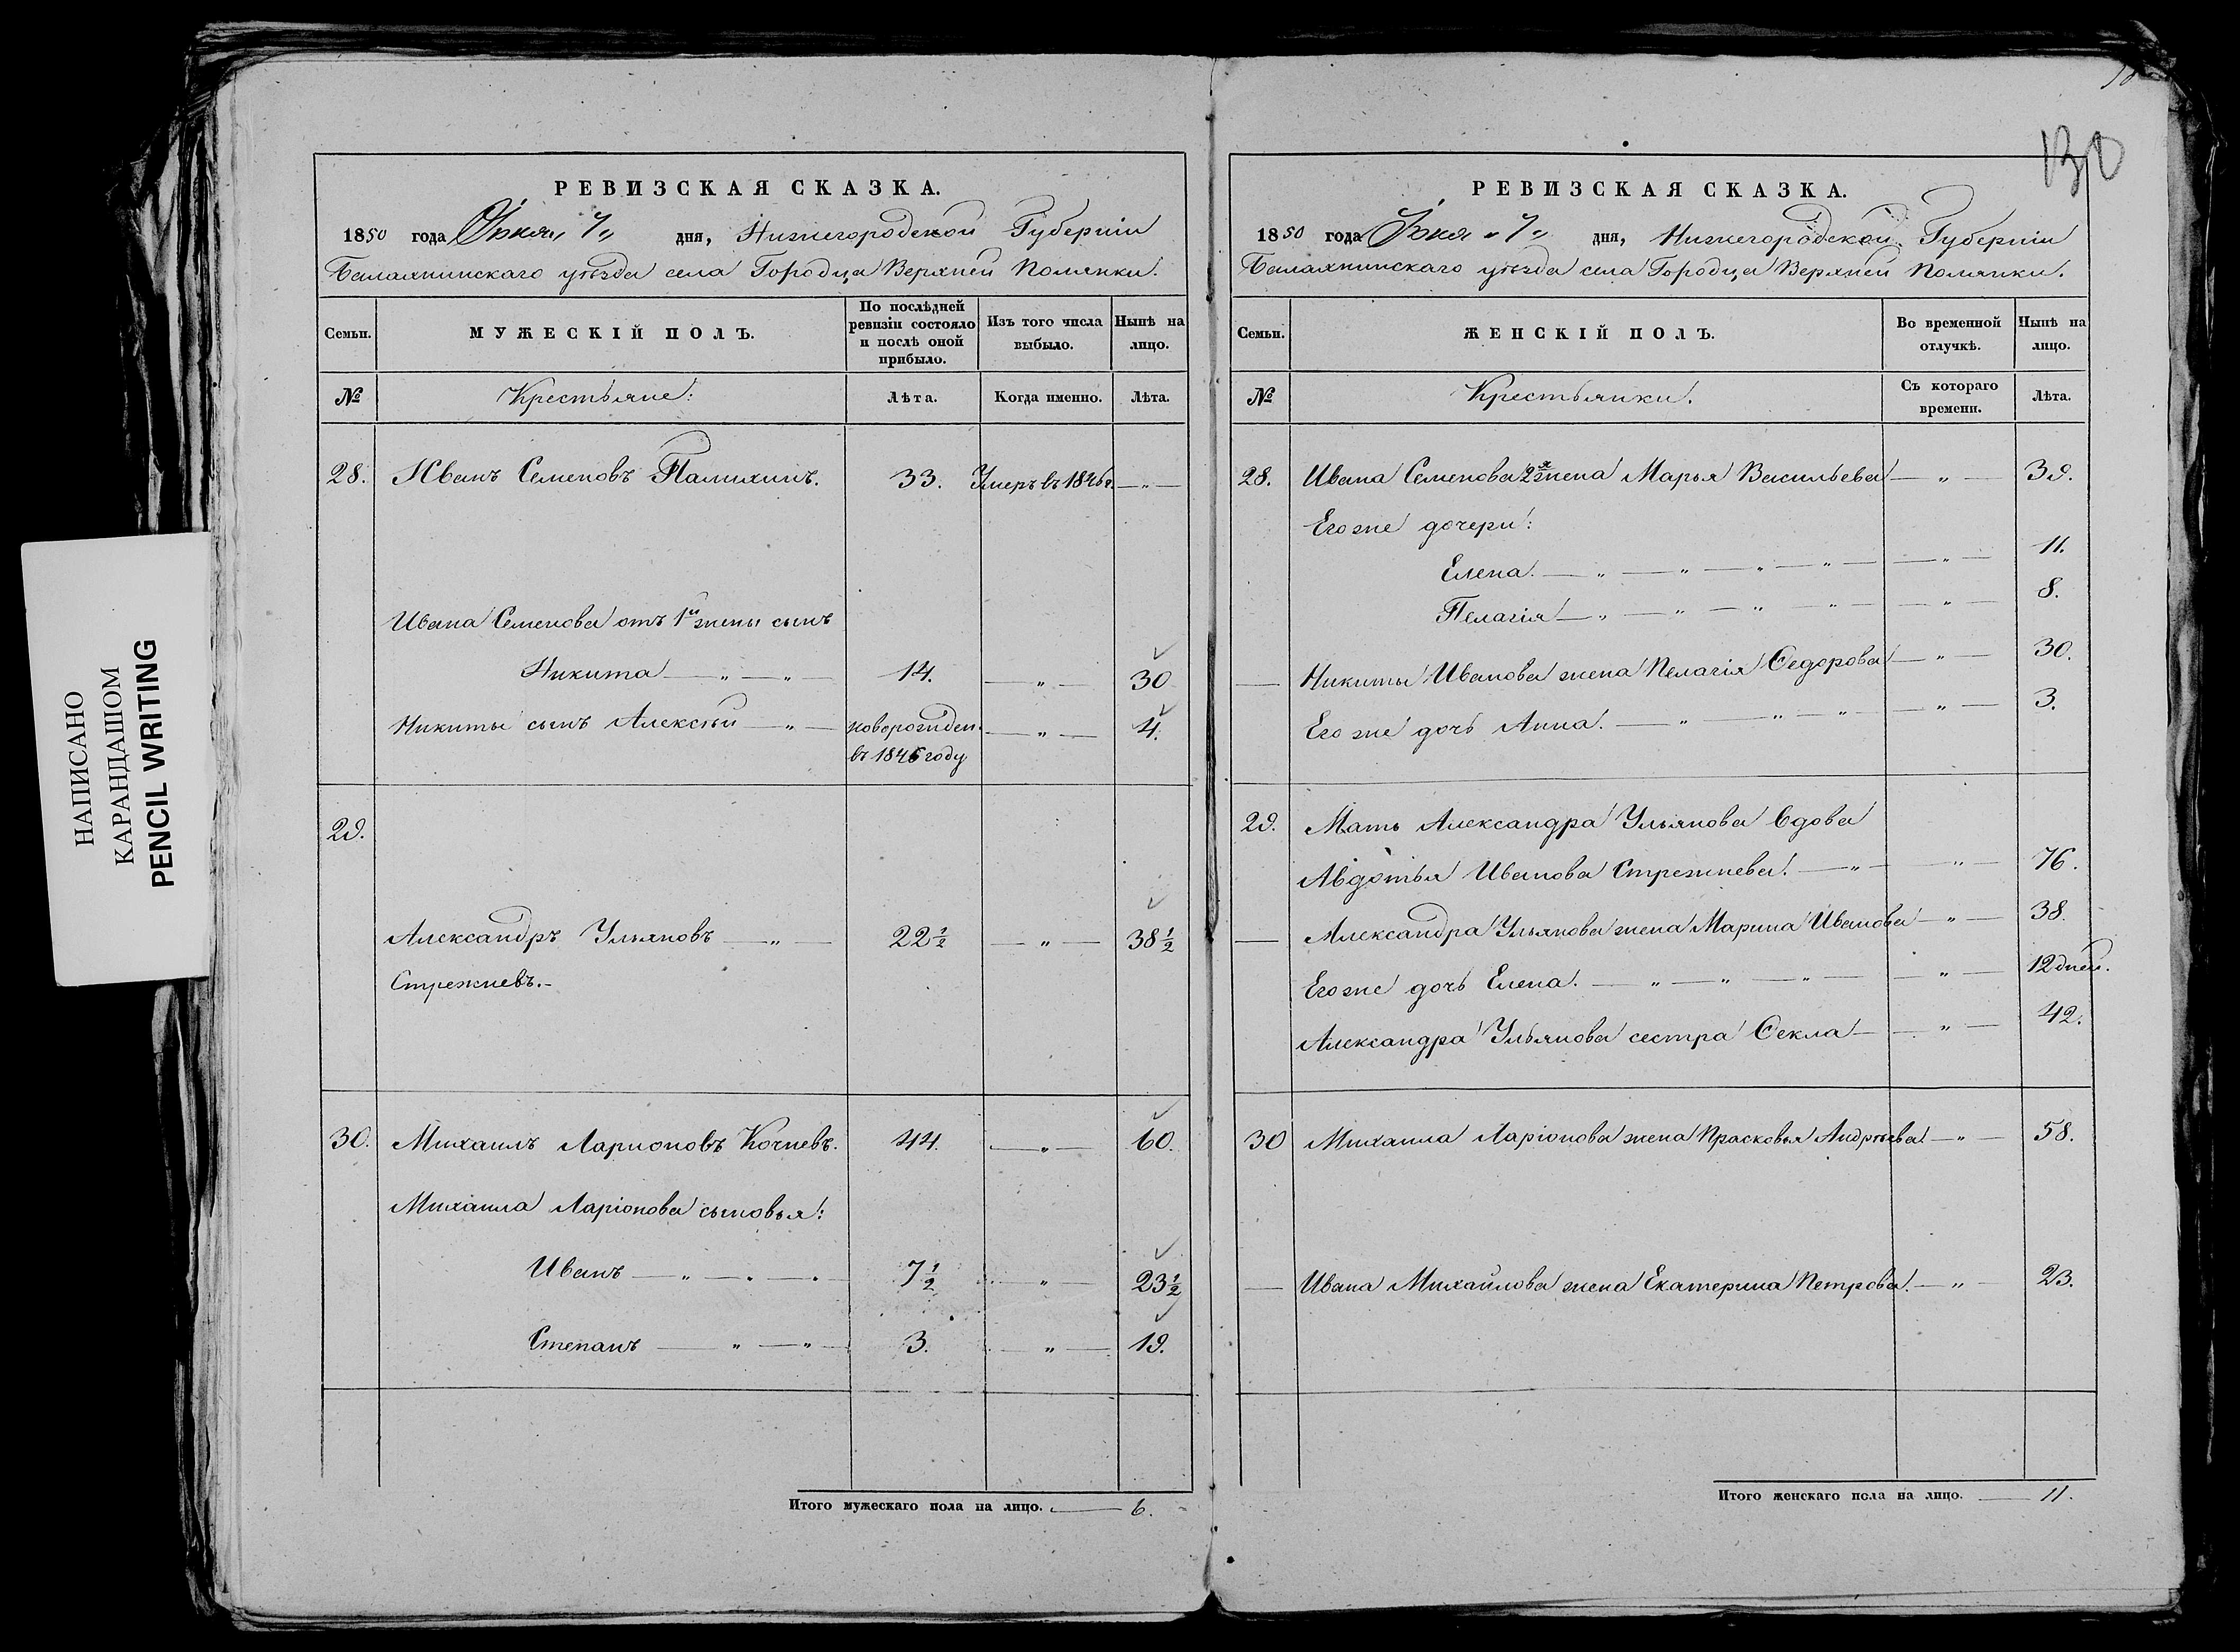 НАПИСАНО
КАРАНДАШОМ
PENCIL WRITING
РЕВИЗСКАЯ СКАЗКА.
1850 года 7 дня, Нижегородской Губерніи
Балахнинскаго уѣзда села Городца Верхней Полянки.
Семьи. МУЖЕСКІЙ ПОЛЪ. По послѣдней ревизіи состояло и послѣ оной прибыло. Изъ того числа выбыло. Нынѣ на лицо.
№ Крестьяне: Лѣта. Когда именно. Лѣта.
28. Иванъ Семеновъ Палихинъ. 33. Умеръ въ 1846 г. — " —
Ивана Семенова отъ 1й жены сынъ
Никита — " — " — 14. — " — 30
Никиты сынъ Алексѣй — " — новорожден. — " — 4.
въ 1846 году
29.
Александръ Ульяновъ — " — 22 1/2 — " — 38 1/2
Стрежневъ.-
30. Михаилъ Ларионовъ Кочневъ. 44. — " — 60.
Михаила Ларіонова сыновья:
Иванъ — " — " — " 7 1/2 " — 23 1/2
Степанъ — " — " — 3. " — 19.
Итого мужескаго пола на лицо. — 6.
130
РЕВИЗСКАЯ СКАЗКА.
1850 года "7" дня, Нижегородской Губерніи
Балахнинскаго уѣзда села Городца Верхней Полянки.
Семьи. ЖЕНСКІЙ ПОЛЪ. Во временной отлучкѣ. Нынѣ на лицо.
№ Крестьянки. Съ котораго времени. Лѣта.
28. Ивана Семенова 2я жена Марья Васильева — " — 39.
Его же дочери:
Елена. — " — " — " — " — — " — 11.
Пелагія — " — " — " — " — — " — 8.
— Никиты Иванова жена Пелагія Ѳедорова — " — 30.
Его же дочь Анна. — " — " — " — — " — 3.
29. Мать Александра Ульянова вдова
Авдотья Иванова Стрежнева. — " — — " — 76.
— Александра Ульянова жена Марина Иванова — " — 38.
Его же дочь Елена. — " — " — " — — " — 12 дней.
Александра Ульянова сестра Ѳекла — — " — 42.
30 Михаила Ларіонова жена Прасковья Андрѣева. — " — 58.
— Ивана Михайлова жена Екатерина Петрова. — " — 23.
Итого женскаго пола на лицо. — 11.